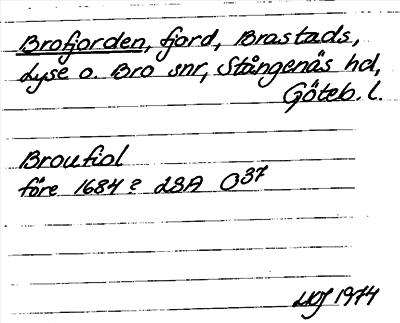 Brofjorden, fjord, Brastads,
Lyse o. Bro snr, Stångenäs hd,
Göteb. l.
Broufiol
före 1684? LSA O37
1974